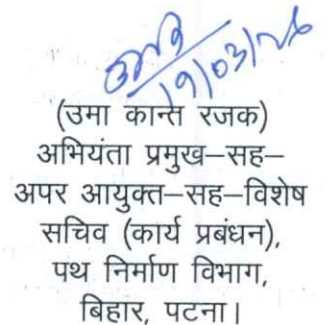 19/03/26
(उमा कान्त रजक)
अभियंता प्रमुख–सह–
अपर आयुक्त–सह–विशेष
सचिव (कार्य प्रबंधन),
पथ निर्माण विभाग,
बिहार, पटना।